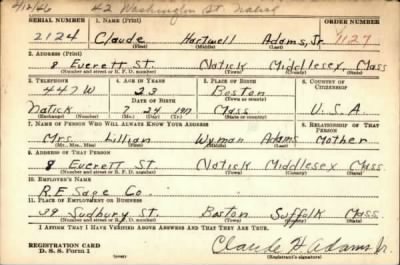 4/12/46 42 Washington St. Natick
SERIAL NUMBER 1. NAME (Print) ORDER NUMBER
2124 Claude Hartwell Adams, Jr. 1127
(First) (Middle) (Last)
2. ADDRESS (Print)
8 Everett St. Natick Middlesex Mass
(Number and street or R. F. D. number) (Town) (County) (State)
3. TELEPHONE 4. AGE IN YEARS 5. PLACE OF BIRTH 6. COUNTRY OF CITIZENSHIP
447W 23 Boston
DATE OF BIRTH (Town or county)
Natick 7 24 1917 Mass U.S.A
(Exchange) (Number) (Mo.) (Day) (Yr.) (State or country)
7. NAME OF PERSON WHO WILL ALWAYS KNOW YOUR ADDRESS 8. RELATIONSHIP OF THAT PERSON
Mrs. Lillian Wyman Adams Mother
(Mr., Mrs., Miss) (First) (Middle) (Last)
9. ADDRESS OF THAT PERSON
8 Everett St. Natick Middlesex Mass
(Number and street or R. F. D. number) (Town) (County) (State)
10. EMPLOYER'S NAME
R.E. Sage Co.
11. PLACE OF EMPLOYMENT OR BUSINESS
39 Sudbury St. Boston Suffolk Mass
(Number and street or R. F. D. number) (Town) (County) (State)
I AFFIRM THAT I HAVE VERIFIED ABOVE ANSWERS AND THAT THEY ARE TRUE.
REGISTRATION CARD
D. S. S. Form 1 (over) Claude H Adams Jr.
(Registrant's signature)